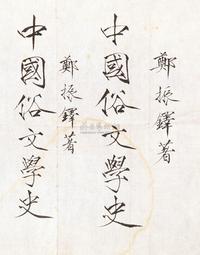 鄭振鐸著
中國俗文學史
鄭振鐸著
中國俗文學史